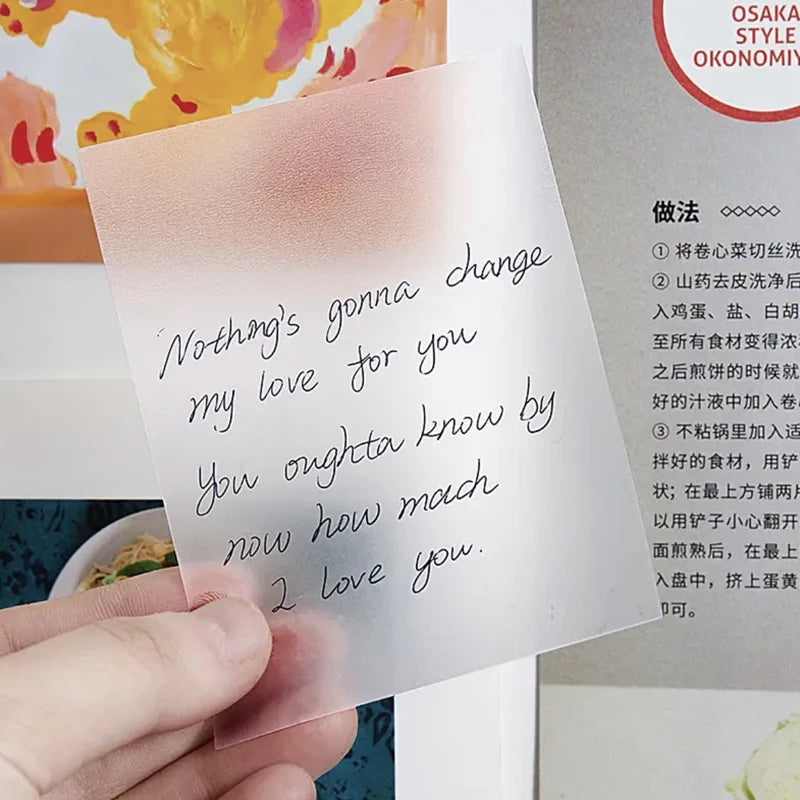 OSAKA
STYLE
OKONOMIY
Nothing's gonna change
my love for you
You oughta know by
now how much
I love you.
做法
① 将卷心菜切丝洗
② 山药去皮洗净后
入鸡蛋、盐、白胡
至所有食材变得浓
之后煎饼的时候就
好的汁液中加入卷
③ 不粘锅里加入适
拌好的食材，用铲
状；在最上方铺两
以用铲子小心翻开
面煎熟后，在最上
入盘中，挤上蛋黄
即可。